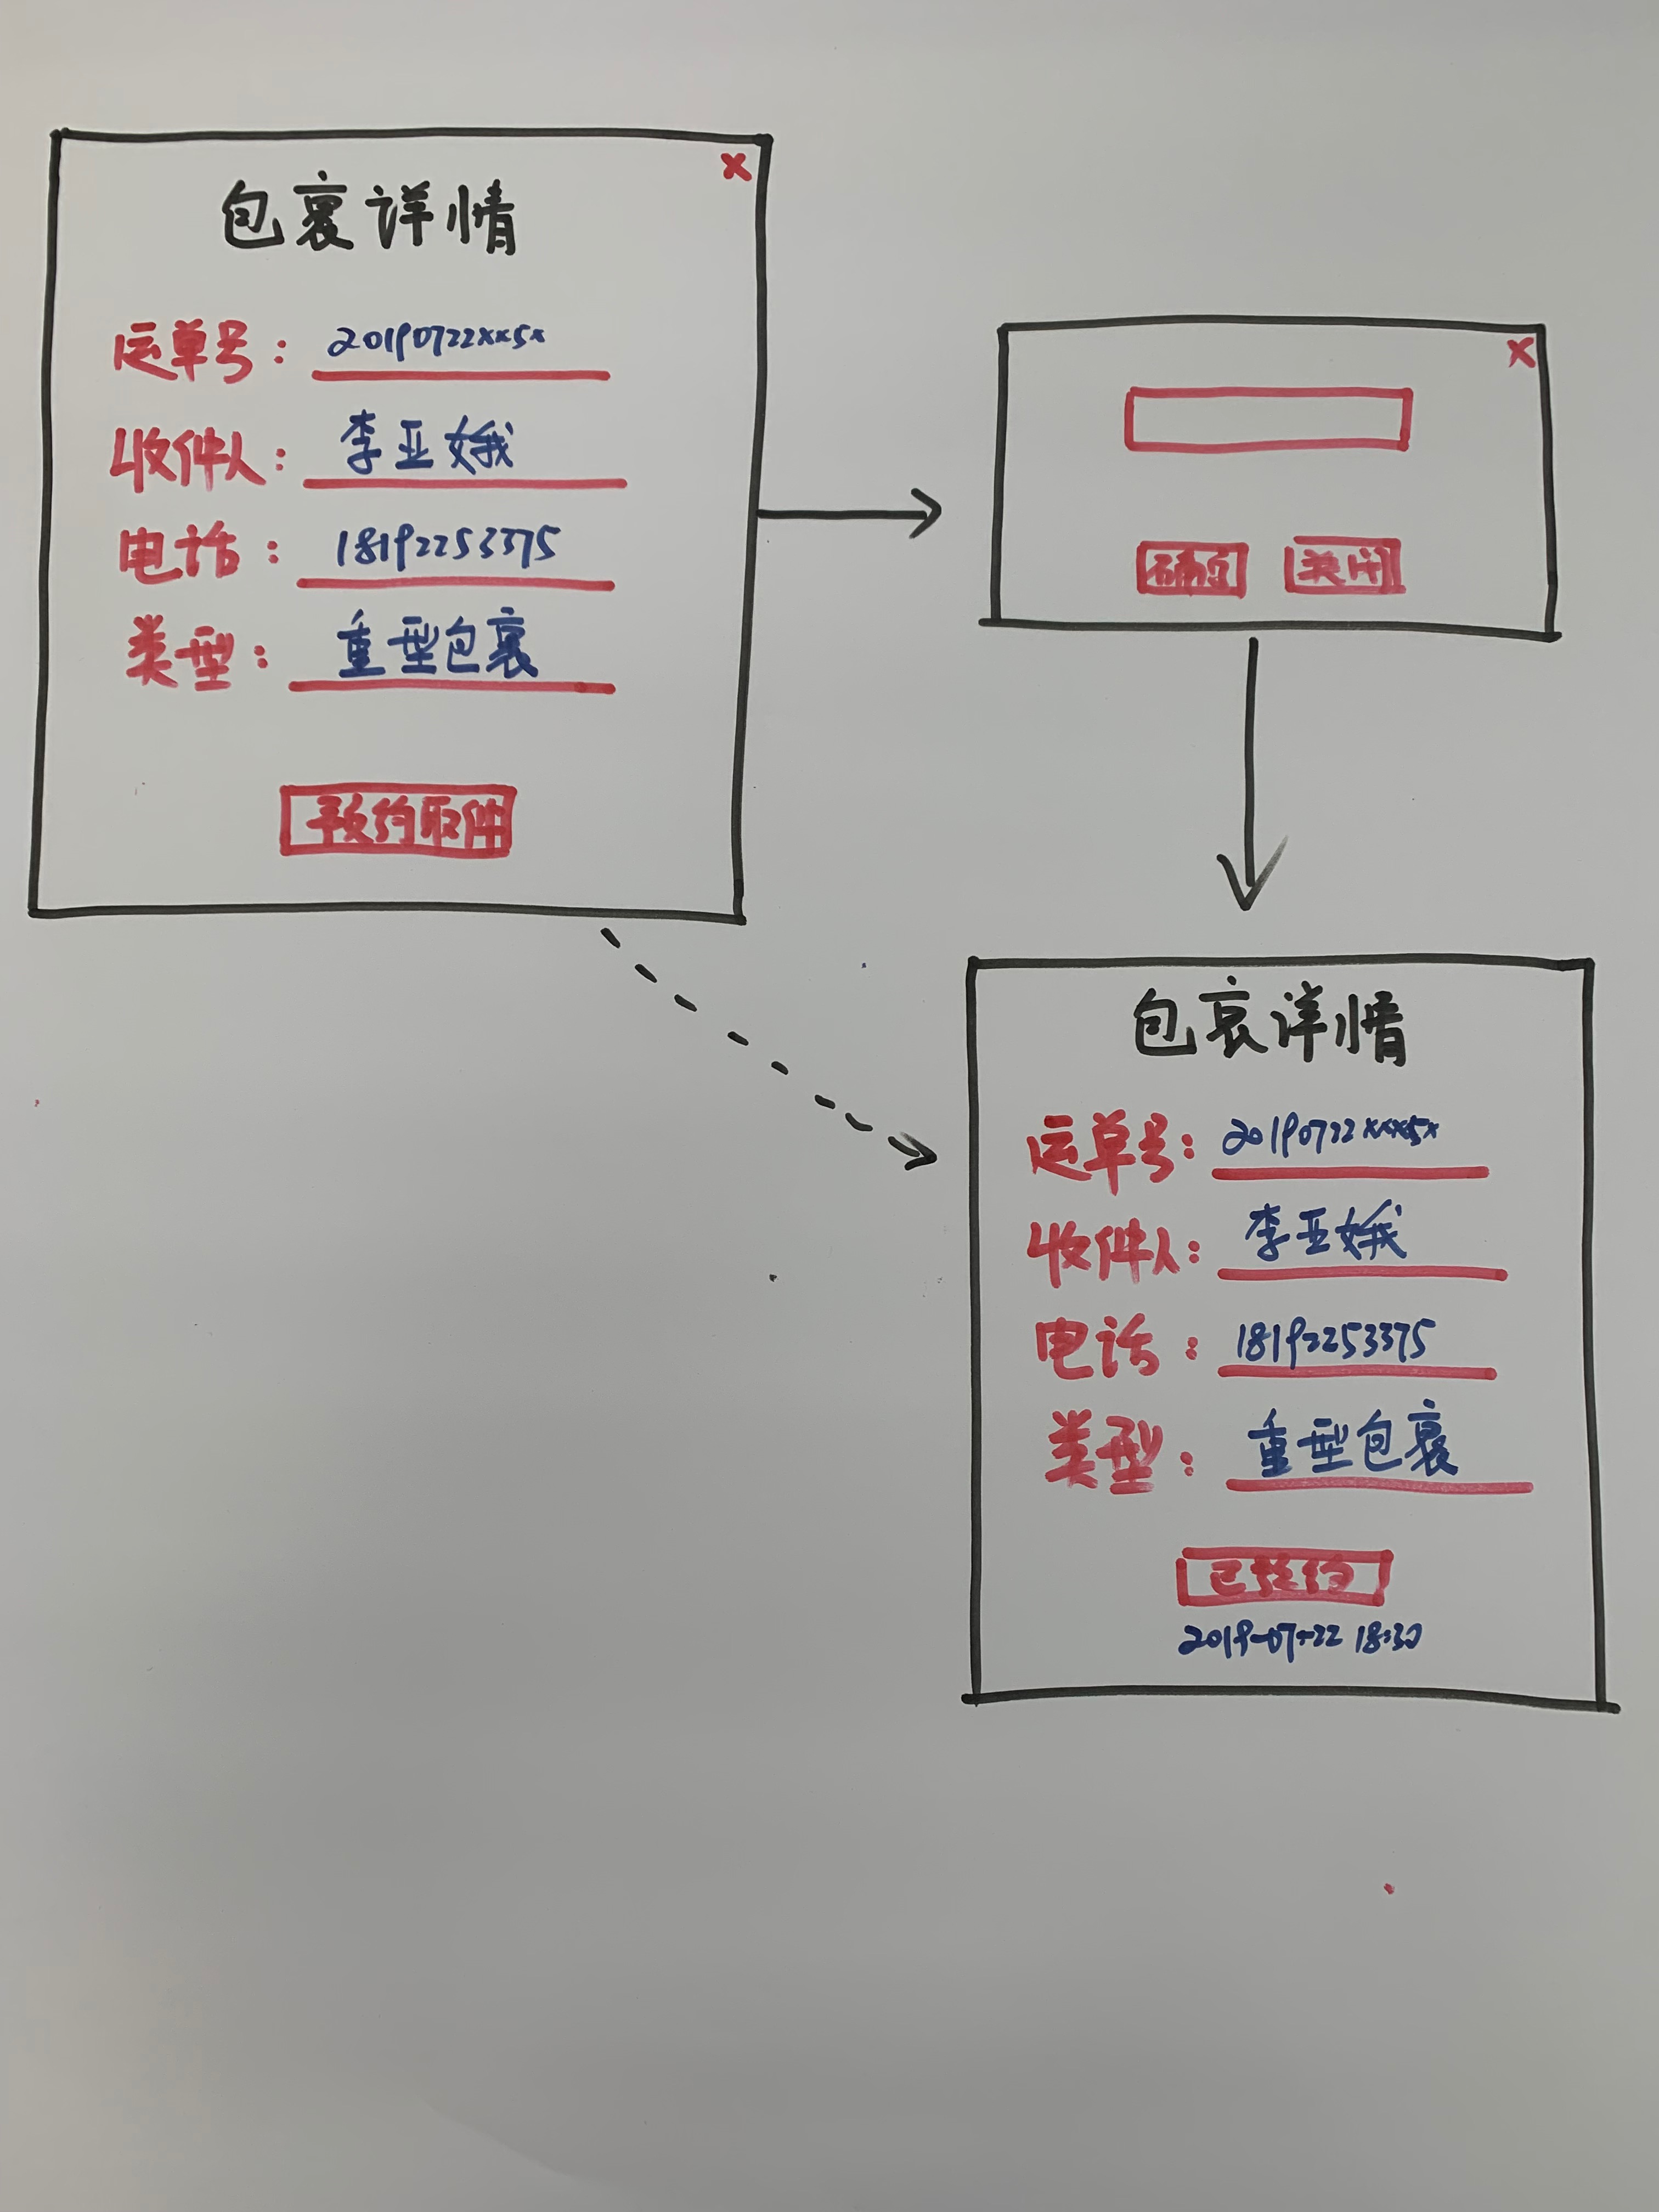 ×
包裹详情
运单号: 20190722xx5x
收件人: 李亚娥
电话: 18192253375
类型: 重型包裹
预约取件
×
确定 关闭
包裹详情
运单号: 20190722xxx5x
收件人: 李亚娥
电话: 18192253375
类型: 重型包裹
已预约
2019-07-22 18:30